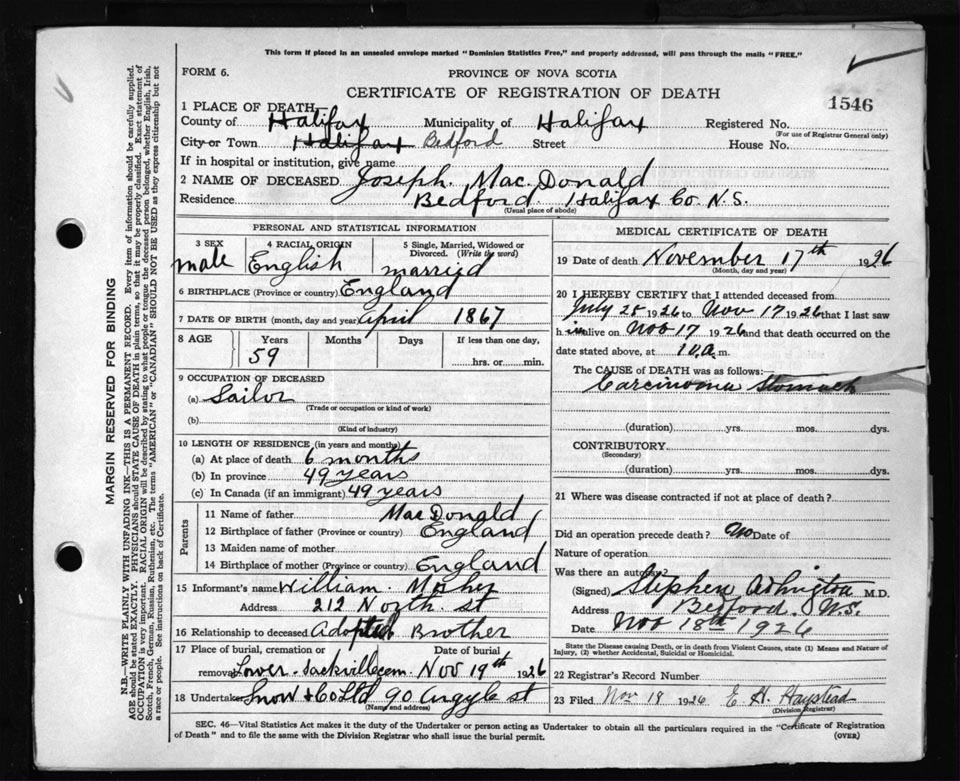 This form if placed in an unsealed envelope marked "Dominion Statistics Free," and properly addressed, will pass through the mails "FREE."
FORM 6.
PROVINCE OF NOVA SCOTIA
CERTIFICATE OF REGISTRATION OF DEATH
1546
1 PLACE OF DEATH
County of Halifax Municipality of Halifax Registered No.
(For use of Registrar General only)
City or Town Halifax Bedford Street House No.
If in hospital or institution, give name
2 NAME OF DECEASED Joseph. Mac Donald
Residence Bedford Halifax Co N.S.
(Usual place of abode)
PERSONAL AND STATISTICAL INFORMATION
3 SEX 4 RACIAL ORIGIN 5 Single, Married, Widowed or Divorced. (Write the word)
male English married
6 BIRTHPLACE (Province or country) England
7 DATE OF BIRTH (month, day and year) April 1867
8 AGE Years Months Days If less than one day,
59 hrs. or min.
9 OCCUPATION OF DECEASED
(a) Sailor
(Trade or occupation or kind of work)
(b)
(Kind of industry)
10 LENGTH OF RESIDENCE (in years and months)
(a) At place of death 6 months
(b) In province 49 years
(c) In Canada (if an immigrant) 49 years
Parents
11 Name of father MacDonald
12 Birthplace of father (Province or country) England
13 Maiden name of mother
14 Birthplace of mother (Province or country) England
15 Informant's name William Mosher
Address 212 North. st
16 Relationship to deceased Adopted Brother
17 Place of burial, cremation or removal Date of burial
Lower Sackville cem. Nov 19th 1926
18 Undertaker Snow & Co Ltd 90 Argyle st
(Name and address)
MEDICAL CERTIFICATE OF DEATH
19 Date of death November 17th 1926
(Month, day and year)
20 I HEREBY CERTIFY that I attended deceased from
July 28 1926 to Nov 17 1926 that I last saw
h im alive on Nov 17 1926 and that death occurred on
date stated above, at 10 a.m.
The CAUSE of DEATH was as follows:
Carcinoma Stomach
(duration) yrs. mos. dys.
CONTRIBUTORY
(Secondary)
(duration) yrs. mos. dys.
21 Where was disease contracted if not at place of death?
Did an operation precede death? No Date of
Nature of operation
Was there an autopsy?
(Signed) Stephen M.D.
Address Bedford N.S.
Date Nov 18th 1926
State the Disease causing Death, or in death from Violent Causes, state (1) Means and Nature of Injury, (2) whether Accidental, Suicidal or Homicidal.
22 Registrar's Record Number
23 Filed Nov 18 1926 E. H. Haystead
(Division Registrar)
SEC. 46—Vital Statistics Act makes it the duty of the Undertaker or person acting as Undertaker to obtain all the particulars required in the "Certificate of Registration
of Death" and to file the same with the Division Registrar who shall issue the burial permit.
(OVER)
MARGIN RESERVED FOR BINDING
N.B.—WRITE PLAINLY WITH UNFADING INK—THIS IS A PERMANENT RECORD. Every item of information should be carefully supplied.
AGE should be stated EXACTLY. PHYSICIANS should STATE CAUSE OF DEATH in plain terms, so that it may be properly classified. Exact statement of
OCCUPATION is very important. RACIAL ORIGIN will be described by stating to what people or tongue the deceased person belonged, whether English, Irish,
Scotch, French, German, Russian, Ruthenian, etc. The terms "AMERICAN" or "CANADIAN" SHOULD NOT BE USED as they express citizenship but not
a race or people. See instructions on back of Certificate.